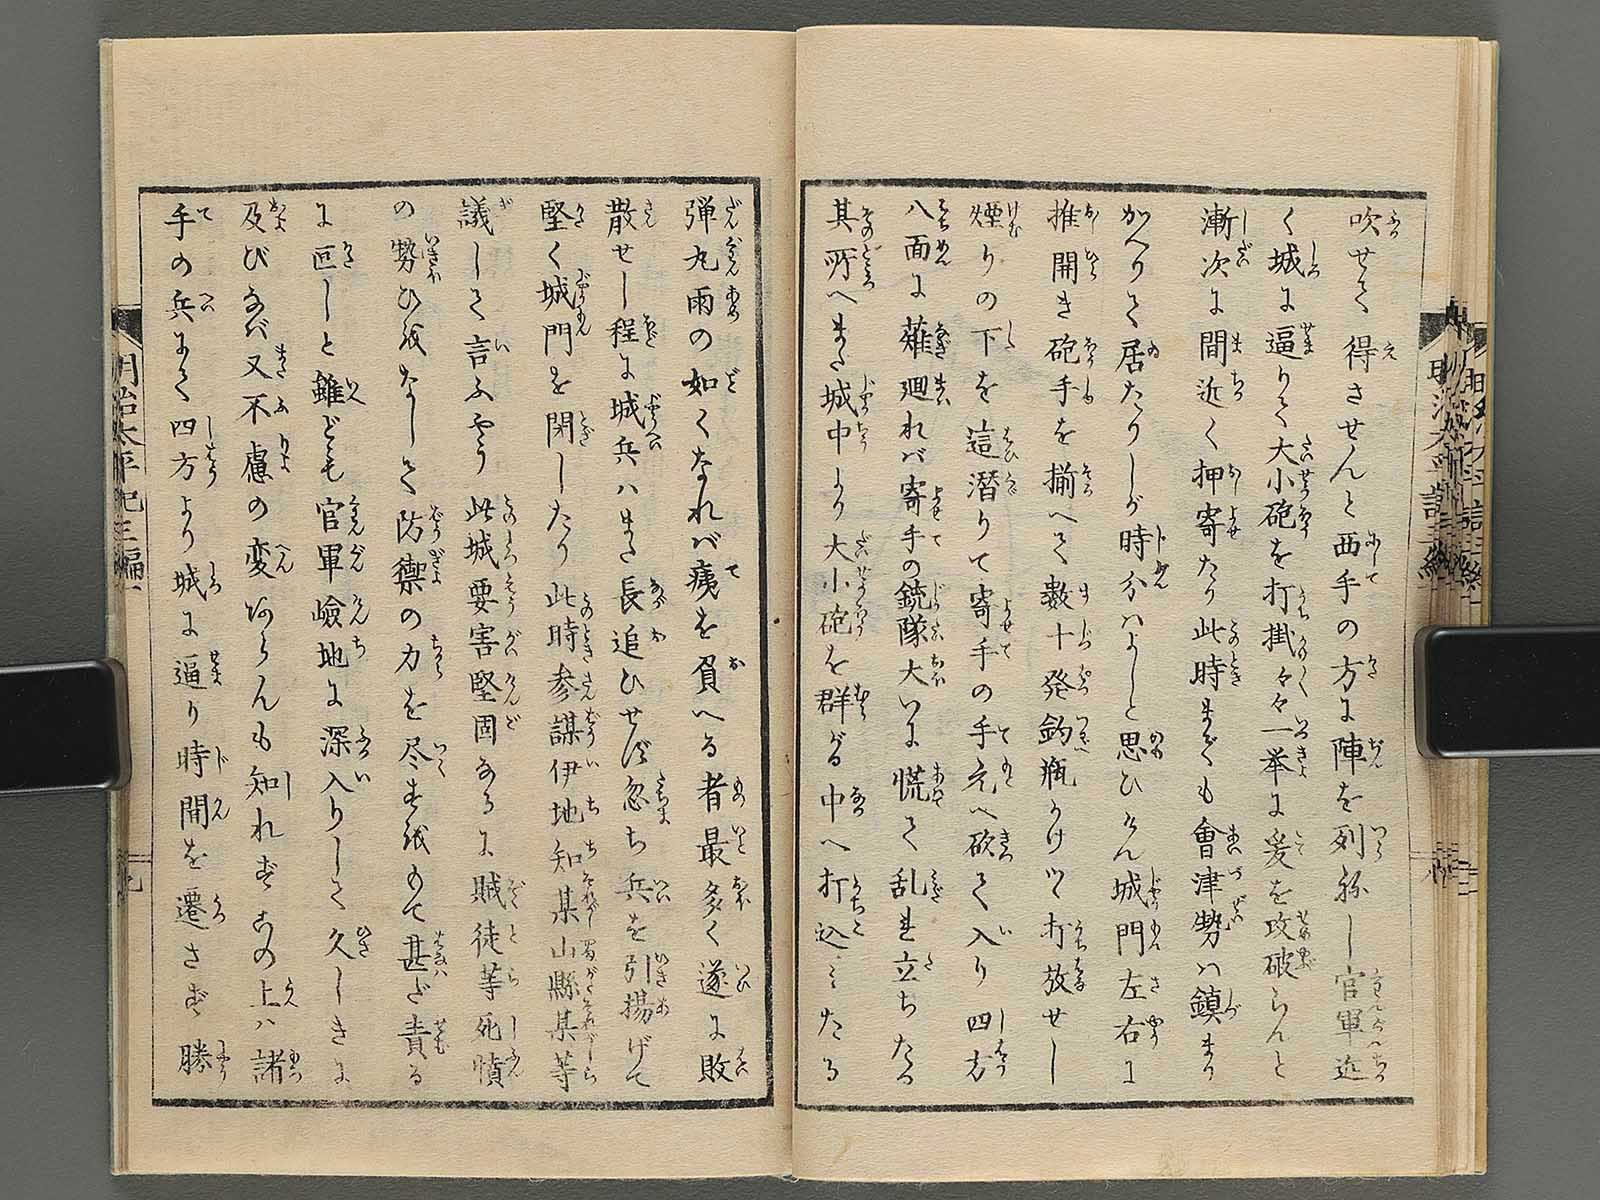 吹せて得させんと西手の方に陣を列ねし官軍近
く城に逼りて大小砲を打掛々々一挙に爰を攻破らんと
漸次に間近く押寄たり此時までも會津勢ハ鎮まり
かへりて居たりしが時分ハよしと思ひけん城門左右に
推開き砲手を揃へて数十発釣瓶かけて打放せし
煙りの下を這潜りて寄手の手元へ砍て入り四方
八面に薙廻れバ寄手の銃隊大いに慌て乱れ立ちたる
其所へまた城中より大小砲を群がる中へ打込みたる
弾丸雨の如くなれバ痍を負へる者最多く遂に敗
散せし程に城兵ハまた長追ひせず忽ち兵を引揚げて
堅く城門を閉したり此時参謀伊地知某山縣某等
議して言ふやう此城要害堅固なるに賊徒等死憤
の勢ひをなして防禦の力を尽すをもて甚だ責る
に叵しと雖ども官軍嶮地に深入りして久しきに
及びなバ又不慮の変あらんも知れず此の上ハ諸
手の兵にて四方より城に逼り時間を遷さず勝
明治太平記三編